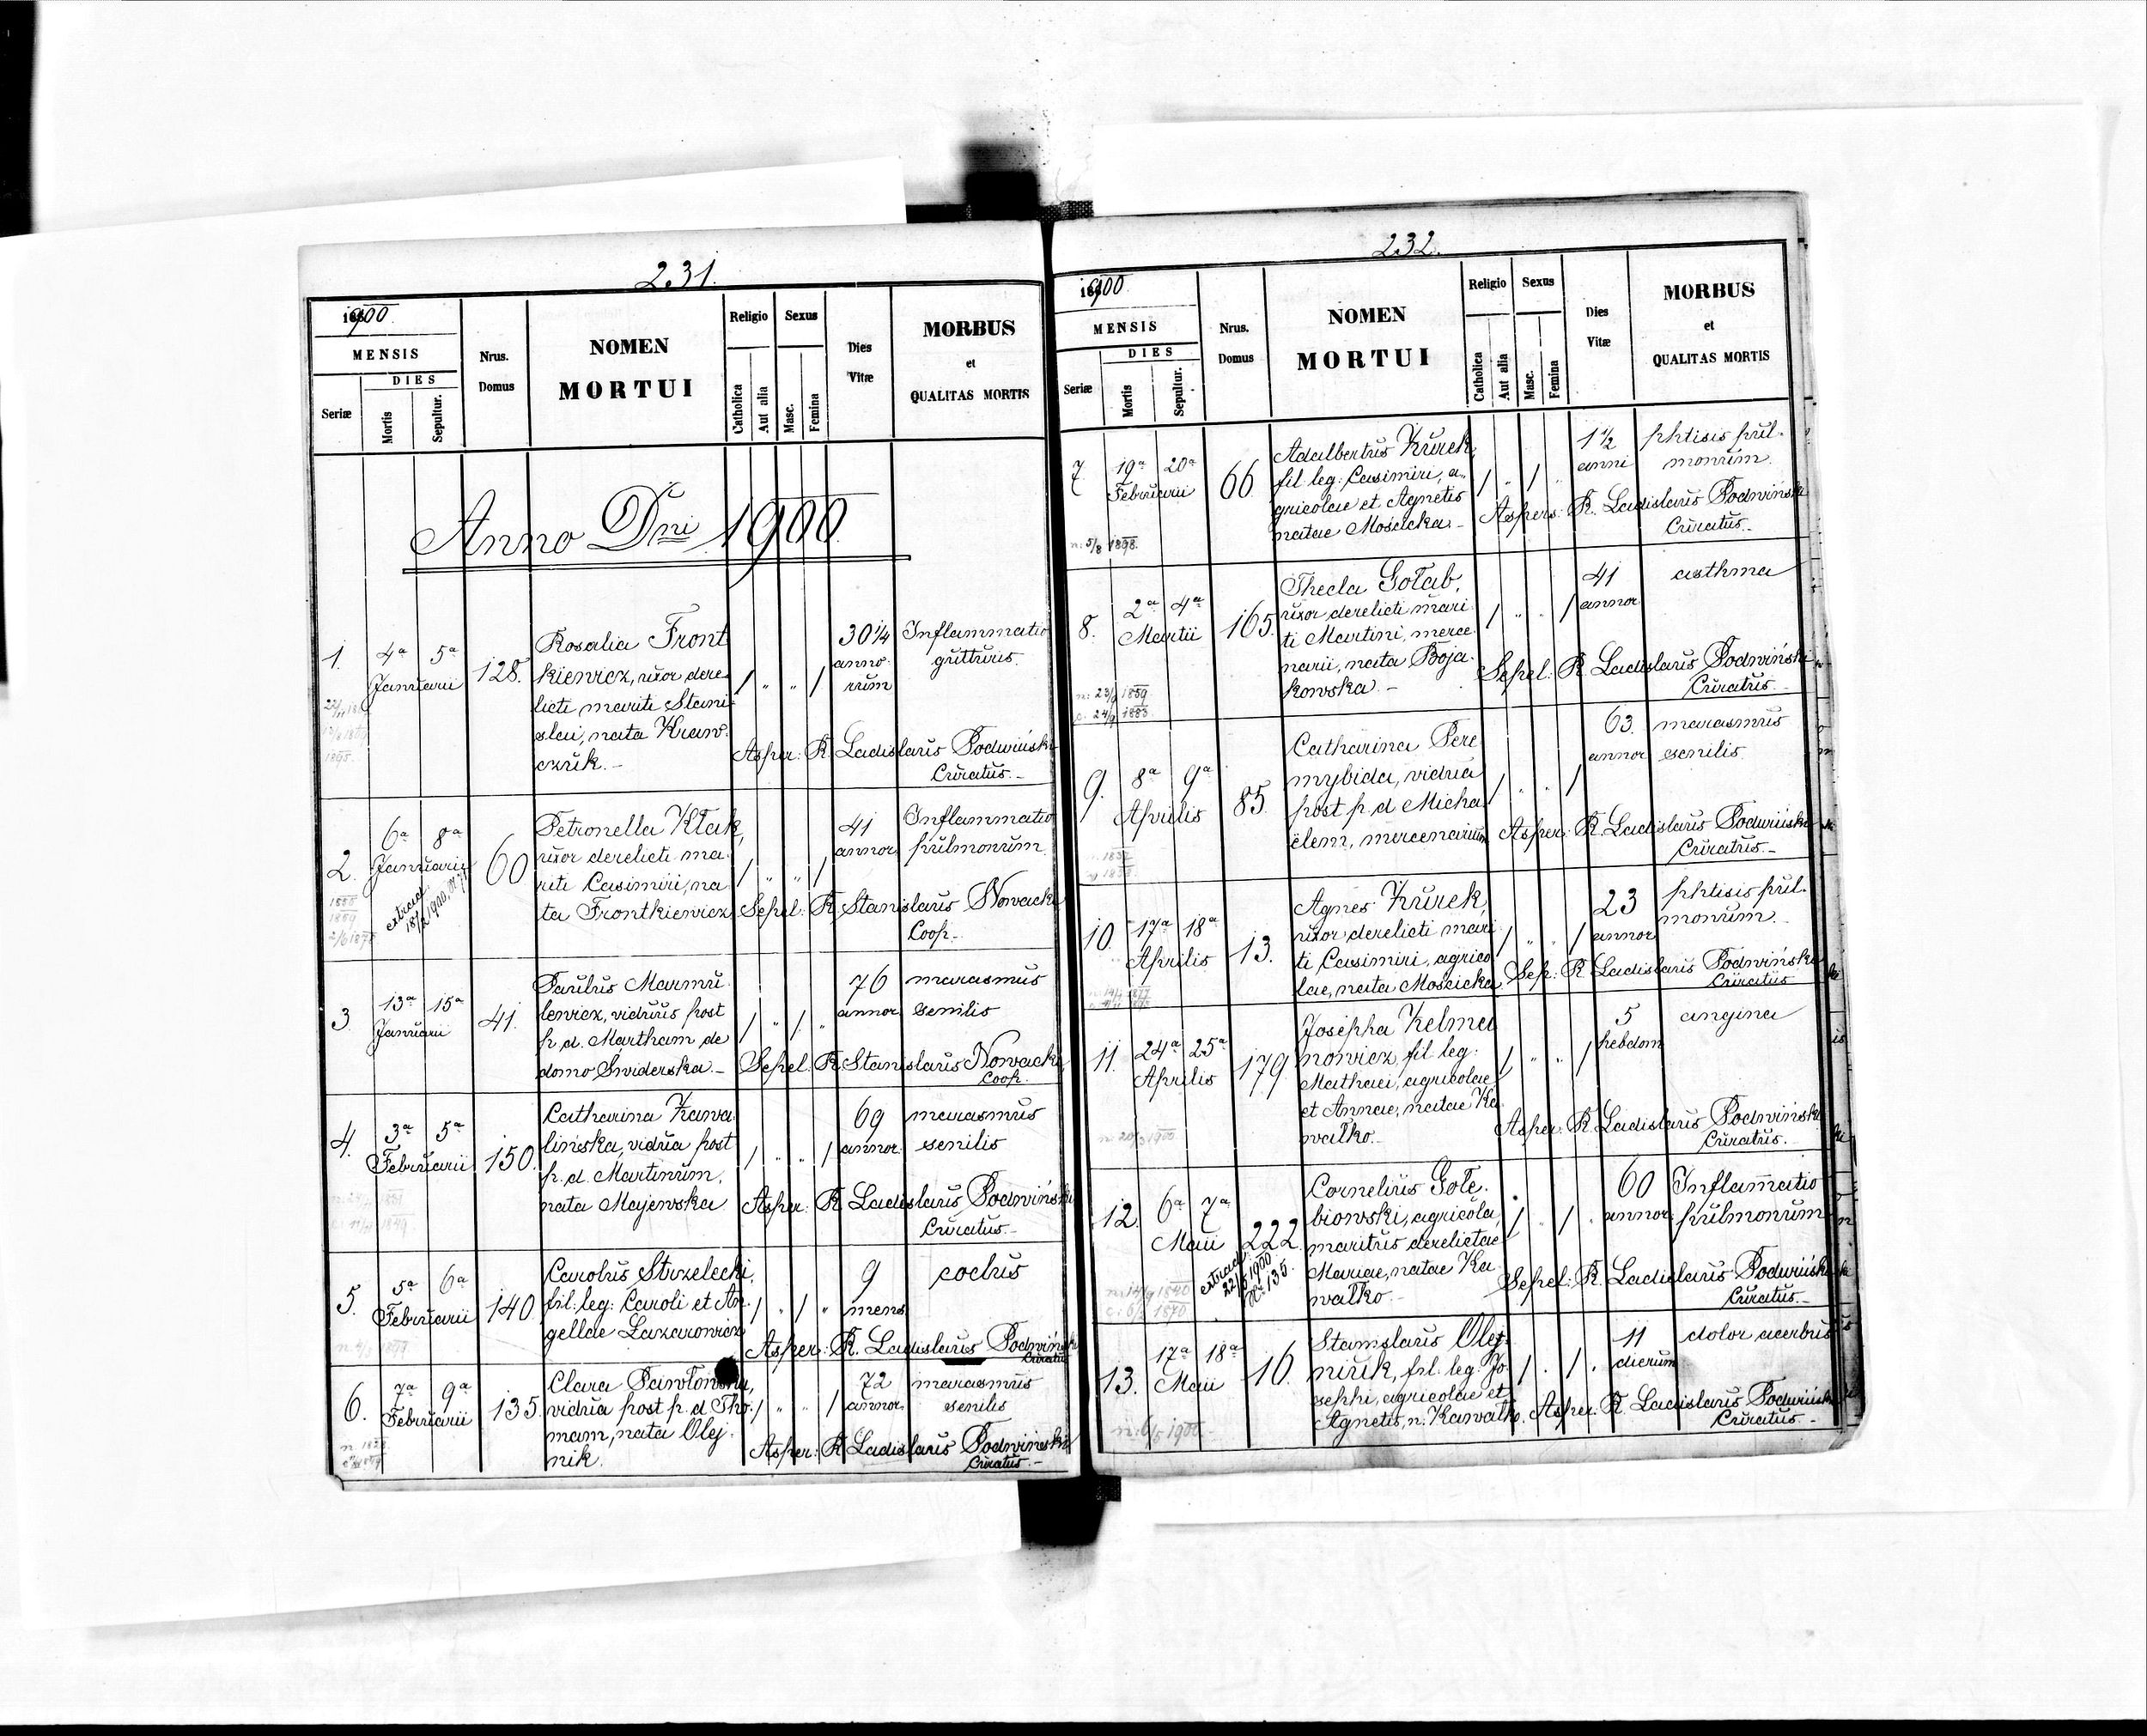 231.
1900
MENSIS
DIES
Seriæ
Mortis
Sepultur.
Nrus.
Domus
NOMEN
MORTUI
Religio
Catholica
Aut alia
Sexus
Masc.
Femina
Dies
Vitæ
MORBUS
et
QUALITAS MORTIS
Anno Dni 1900
1. 4a 5a Januarii 128.
Rosalia Front
kiewicz, uxor dere
licti mariti Stani
slai, nata Kraw
czuk. –
30 1/4
anno
rum
Inflammatio
gutturis.
Asper: R. Ladislaus Podwiński
Curatus. –
2. 6a 8a Januarii 60
extrad.
18/2 1900,
1859
Petronella Kłak,
uxor derelicti ma
riti Casimiri, na
ta Frontkiewicz
41
annor.
Inflammatio
pulmonum.
Sepel: R. Stanislaus Nowacki
Coop. –
3. 13a 15a Januarii 41.
Paulus Marmu
lewicz, viduus post
p. d. Martham de
domo Świderska. –
76
annor.
marasmus
senilis
Sepel. R. Stanislaus Nowacki
Coop.
4. 3a 5a Februarii 150.
Catharina Kawa
lińska, vidua post
p. d. Martinum,
nata Majewska
69
annor.
marasmus
senilis
Asper: R. Ladislaus Podwiński
Curatus. –
5. 5a 6a Februarii 140.
Carolus Strzelecki,
fil: leg: Caroli et An
gellae Łazarowicz
9
mens
Asper: R. Ladislaus Podwiński
Curatus
6. 7a 9a Februarii 135.
Clara Pawłowska,
vidua post p. d. Tho
mam, nata Olej
nik.
72
annor.
marasmus
senilis
Asper: R. Ladislaus Podwiński
Curatus. –
232.
1900
MENSIS
DIES
Seriæ
Mortis
Sepultur.
Nrus.
Domus
NOMEN
MORTUI
Religio
Catholica
Aut alia
Sexus
Masc.
Femina
Dies
Vitæ
MORBUS
et
QUALITAS MORTIS
7. 19a 20a Februarii 66
n: 5/8 1898.
Adalbertus Kurek,
fil. leg: Casimiri, a
gricolae et Agnetis
natae Mościcka. –
1 1/2
anni
phtisis pul
monum.
Aspers: R. Ladislaus Podwiński
Curatus. –
8. 2a 4a Martii 165.
1859
1883.
Thecla Gołab,
uxor derelicti mari
ti Martini, merce
narii, nata Boja
kowska. –
41
annor.
asthma
Sepel: R. Ladislaus Podwiński
Curatus. –
9. 8a 9a Aprilis 85.
Catharina Pere
mybida, vidua
post p. d. Micha
ëlem, mercenarium
63.
annor
marasmus
senilis
Asper: R. Ladislaus Podwiński
Curatus. –
10. 17a 18a Aprilis 13.
Agnes Kurek,
uxor derelicti mari
ti Casimiri, agrico
lae, nata Mościcka.
23
annor
phtisis pul
monum. –
Sep: R. Ladislaus Podwiński
Curatus
11. 24a 25a Aprilis 179
n: 20/3 1900.
Josepha Kelmea
nowicz, fil leg:
Mathaei, agricolae
et Annae, natae Ka
walko. –
5
hebdom
angina
Asper: R. Ladislaus Podwiński
Curatus. –
12. 6a 7a Maii 222.
n: 14/9 1840
1870
extrad.
22/5 1900
No 135.
Cornelius Gołę
biowski, agricola,
maritus derelictae
Mariae, natae Ka
walko. –
60
annor.
Inflam̄atio
pulmonum
Sepel: R. Ladislaus Podwiński
Curatus. –
13. 17a 18a Maii 16.
n: 6/5 1900. –
Stanislaus Olej
niuk, fil. leg. Jo
sephi, agricolae et
Agnetis, n. Kawalko.
11
dierum
dolor acerbus
Asper: R. Ladislaus Podwiński
Curatus –